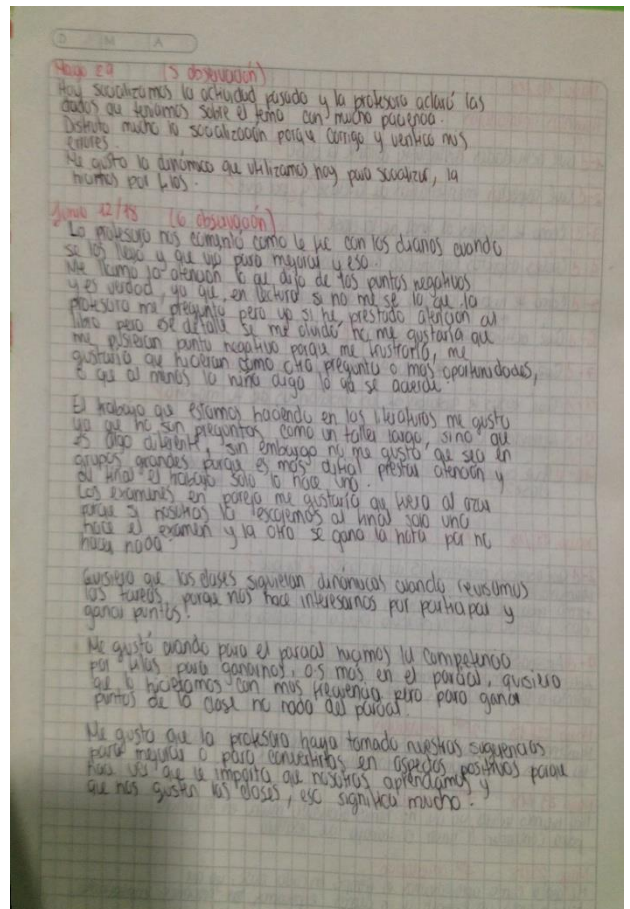 D M A
Mayo 29 (5 observación)
Hoy socializamos la actividad pasada y la profesora aclaró las
dudas que teniamos sobre el tema con mucha paciencia.
Disfruto mucho la socialización porque corrigo y verifico mis
errores.
Me gusto la dinámica que utilizamos hoy para socializar, la
hicimos por filas.
Junio 12/18 (6 observación)
La profesora nos comentó como le fue con los diarios cuando
se los llevó y que vio para mejorar y eso.
Me llamo la atención lo que dijo de los puntos negativos
y es verdad, ya que, en lectura si no me se lo que la
profesora me pregunta pero yo si he prestado atencion al
libro pero ese detalle se me olvidó no me gustaría que
me pusieran punto negativo porque me frustraría, me
gustaria que hicieran como otra pregunta o mas oportunidades,
o que al menos la niña diga lo q se acuerde.
El trabajo que estamos haciendo en las literaturas me gusto
ya que no son preguntas como un taller largo, sino que
es algo diferente, sin embargo no me gustó que sea en
grupos grandes porque es más dificil prestar atención y
al final el trabajo solo lo hace uno.
Los examenes en pareja me gustaría que fuera al azar
porque si nosotras la escojemos al final solo una
hace el examen y la otra se gana la nota por no
hacer nada.
Quisiera que las clases siguieran dinámicas cuando revisamos
las tareas, porque nos hace interesarnos por participar y
ganar puntos.
Me gustó cuando para el parcial hicimos la competencia
por filas para ganarnos 0.5 mas en el parcial, quisiera
que lo hicieramos con mas frecuencia pero para ganar
puntos de la clase no nada del parcial.
Me gusto que la profesora haya tomado nuestras sugerencias
para mejorar o para convertirlos en aspectos positivos porque
hace ver que le importa que nosotras aprendamos y
que nos gusten las clases, eso significa mucho.